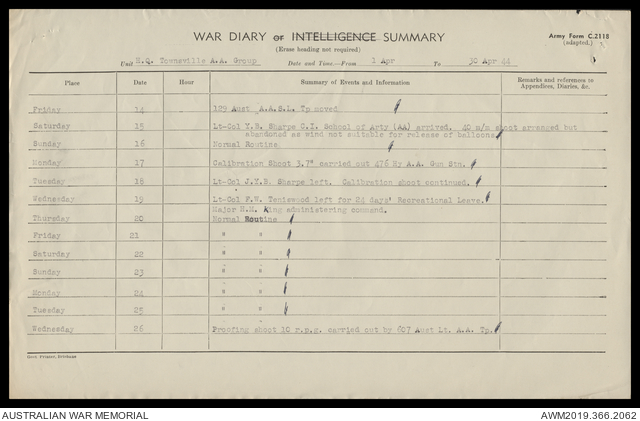 WAR DIARY or INTELLIGENCE SUMMARY
(Erase heading not required)
Army Form C.2118
(adapted.)
Unit H.Q. Townsville A.A. Group Date and Time—From 1 Apr To 30 Apr 44
Place Date Hour Summary of Events and Information Remarks and references to Appendices, Diaries, &c.
Friday 14 129 Aust A.A.S.L. Tp moved
Saturday 15 Lt-Col Y.B. Sharpe C.I. School of Arty (AA) arrived. 40 m/m shoot arranged but
abandoned as wind not suitable for release of balloons.
Sunday 16 Normal Routine
Monday 17 Calibration Shoot 3.7" carried out 476 Hy A.A. Gun Stn.
Tuesday 18 Lt-Col J.Y.B. Sharpe left. Calibration shoot continued.
Wednesday 19 Lt-Col F.W. left for 24 days' Recreational Leave.
Major H.H. King administering command.
Thursday 20 Normal Routine
Friday 21 " "
Saturday 22 " "
Sunday 23 " "
Monday 24 " "
Tuesday 25 " "
Wednesday 26 Proofing shoot 10 r.p.g. carried out by 607 Aust Lt. A.A. Tp.
Govt Printer, Brisbane
AUSTRALIAN WAR MEMORIAL
AWM2019.366.2062